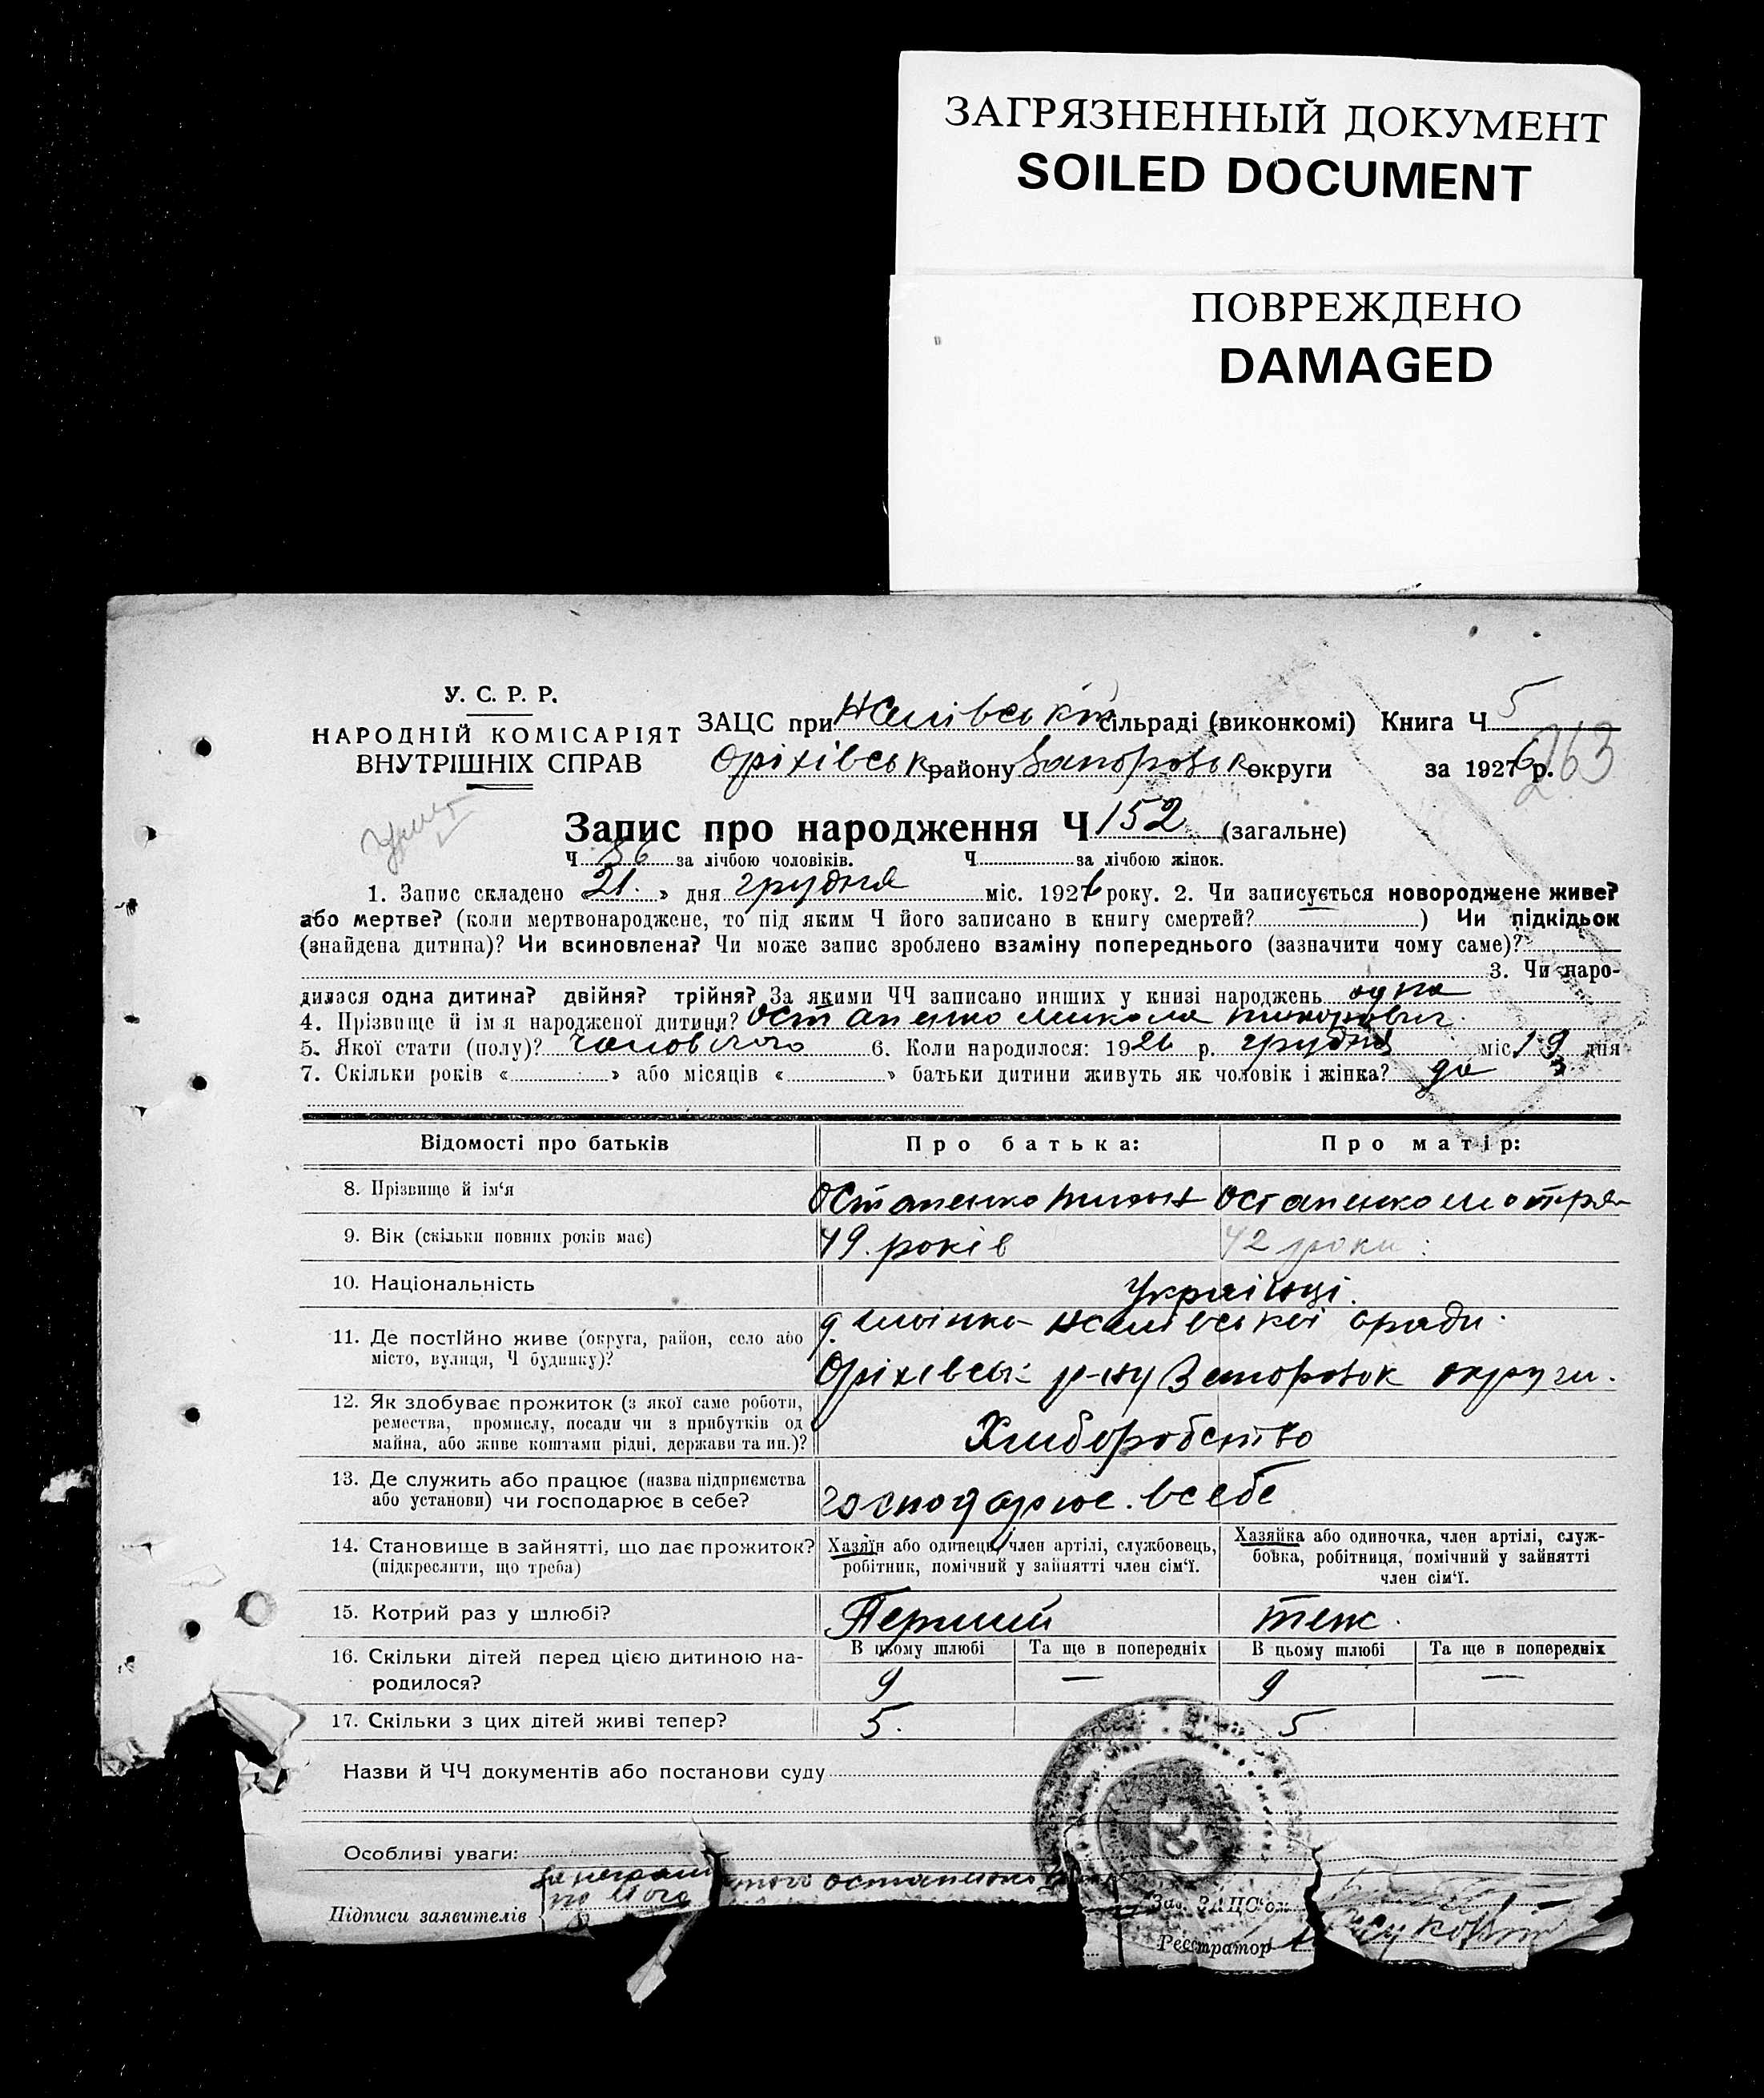 ЗАГРЯЗНЕННЫЙ ДОКУМЕНТ
SOILED DOCUMENT
ПОВРЕЖДЕНО
DAMAGED
У. С. Р. Р.
НАРОДНІЙ КОМІСАРІЯТ
ВНУТРІШНІХ СПРАВ
ЗАЦС при сільраді (виконкомі) Книга Ч 5
Оріхівськ району Запорізьк округи за 1926 р. 263
Запис про народження Ч 152 (загальне)
Ч 86 за лічбою чоловіків. Ч за лічбою жінок.
1. Запис складено « 21 » дня грудня міс. 1926 року. 2. Чи записується новороджене живе?
або мертве? (коли мертвонароджене, то під яким Ч його записано в книгу смертей? ) Чи підкідьок
(знайдена дитина)? Чи всиновлена? Чи може запис зроблено взаміну попереднього (зазначити чому саме)?
3. Чи наро-
дилася одна дитина? двійня? трійня? За якими ЧЧ записано инших у книзі народжень одна
4. Прізвище й ім'я народженої дитини? Остапенко Микола
5. Якої стати (полу)? чоловічого 6. Коли народилося: 1926 р. грудня міс 19 дня
7. Скільки років « » або місяців « » батьки дитини живуть як чоловік і жінка? 
Відомості про батьків Про батька: Про матір:
8. Прізвище й ім'я Остапенко Остапенко Мотря
9. Вік (скільки повних років має) 49 років 42 роки
10. Національність Українці.
11. Де постійно живе (округа, район, село або
місто, вулиця, Ч будинку)?
Оріхівськ р-ну Запорізьк округи.
12. Як здобуває прожиток (з якої саме роботи,
ремества, промислу, посади чи з прибутків од
майна, або живе коштами рідні, держави та ин.)?
Хліборобство
13. Де служить або працює (назва підприємства
або установи) чи господарює в себе?
господарює в себе
14. Становище в зайнятті, що дає прожиток?
(підкреслити, що треба)
Хазяїн або одинець, член артілі, службовець,
робітник, помічний у зайнятті член сім'ї.
Хазяйка або одиночка, член артілі, служ-
бовка, робітниця, помічний у зайнятті
член сім'ї.
15. Котрий раз у шлюбі? Перший теж.
16. Скільки дітей перед цією дитиною на-
родилося?
В цьому шлюбі Та ще в попередніх В цьому шлюбі Та ще в попередніх
9 — 9 —
17. Скільки з цих дітей живі тепер? 5. 5.
Назви й ЧЧ документів або постанови суду
Особливі уваги:
Підписи заявителів
Зав. ЗАЦС'ом
Реєстратор